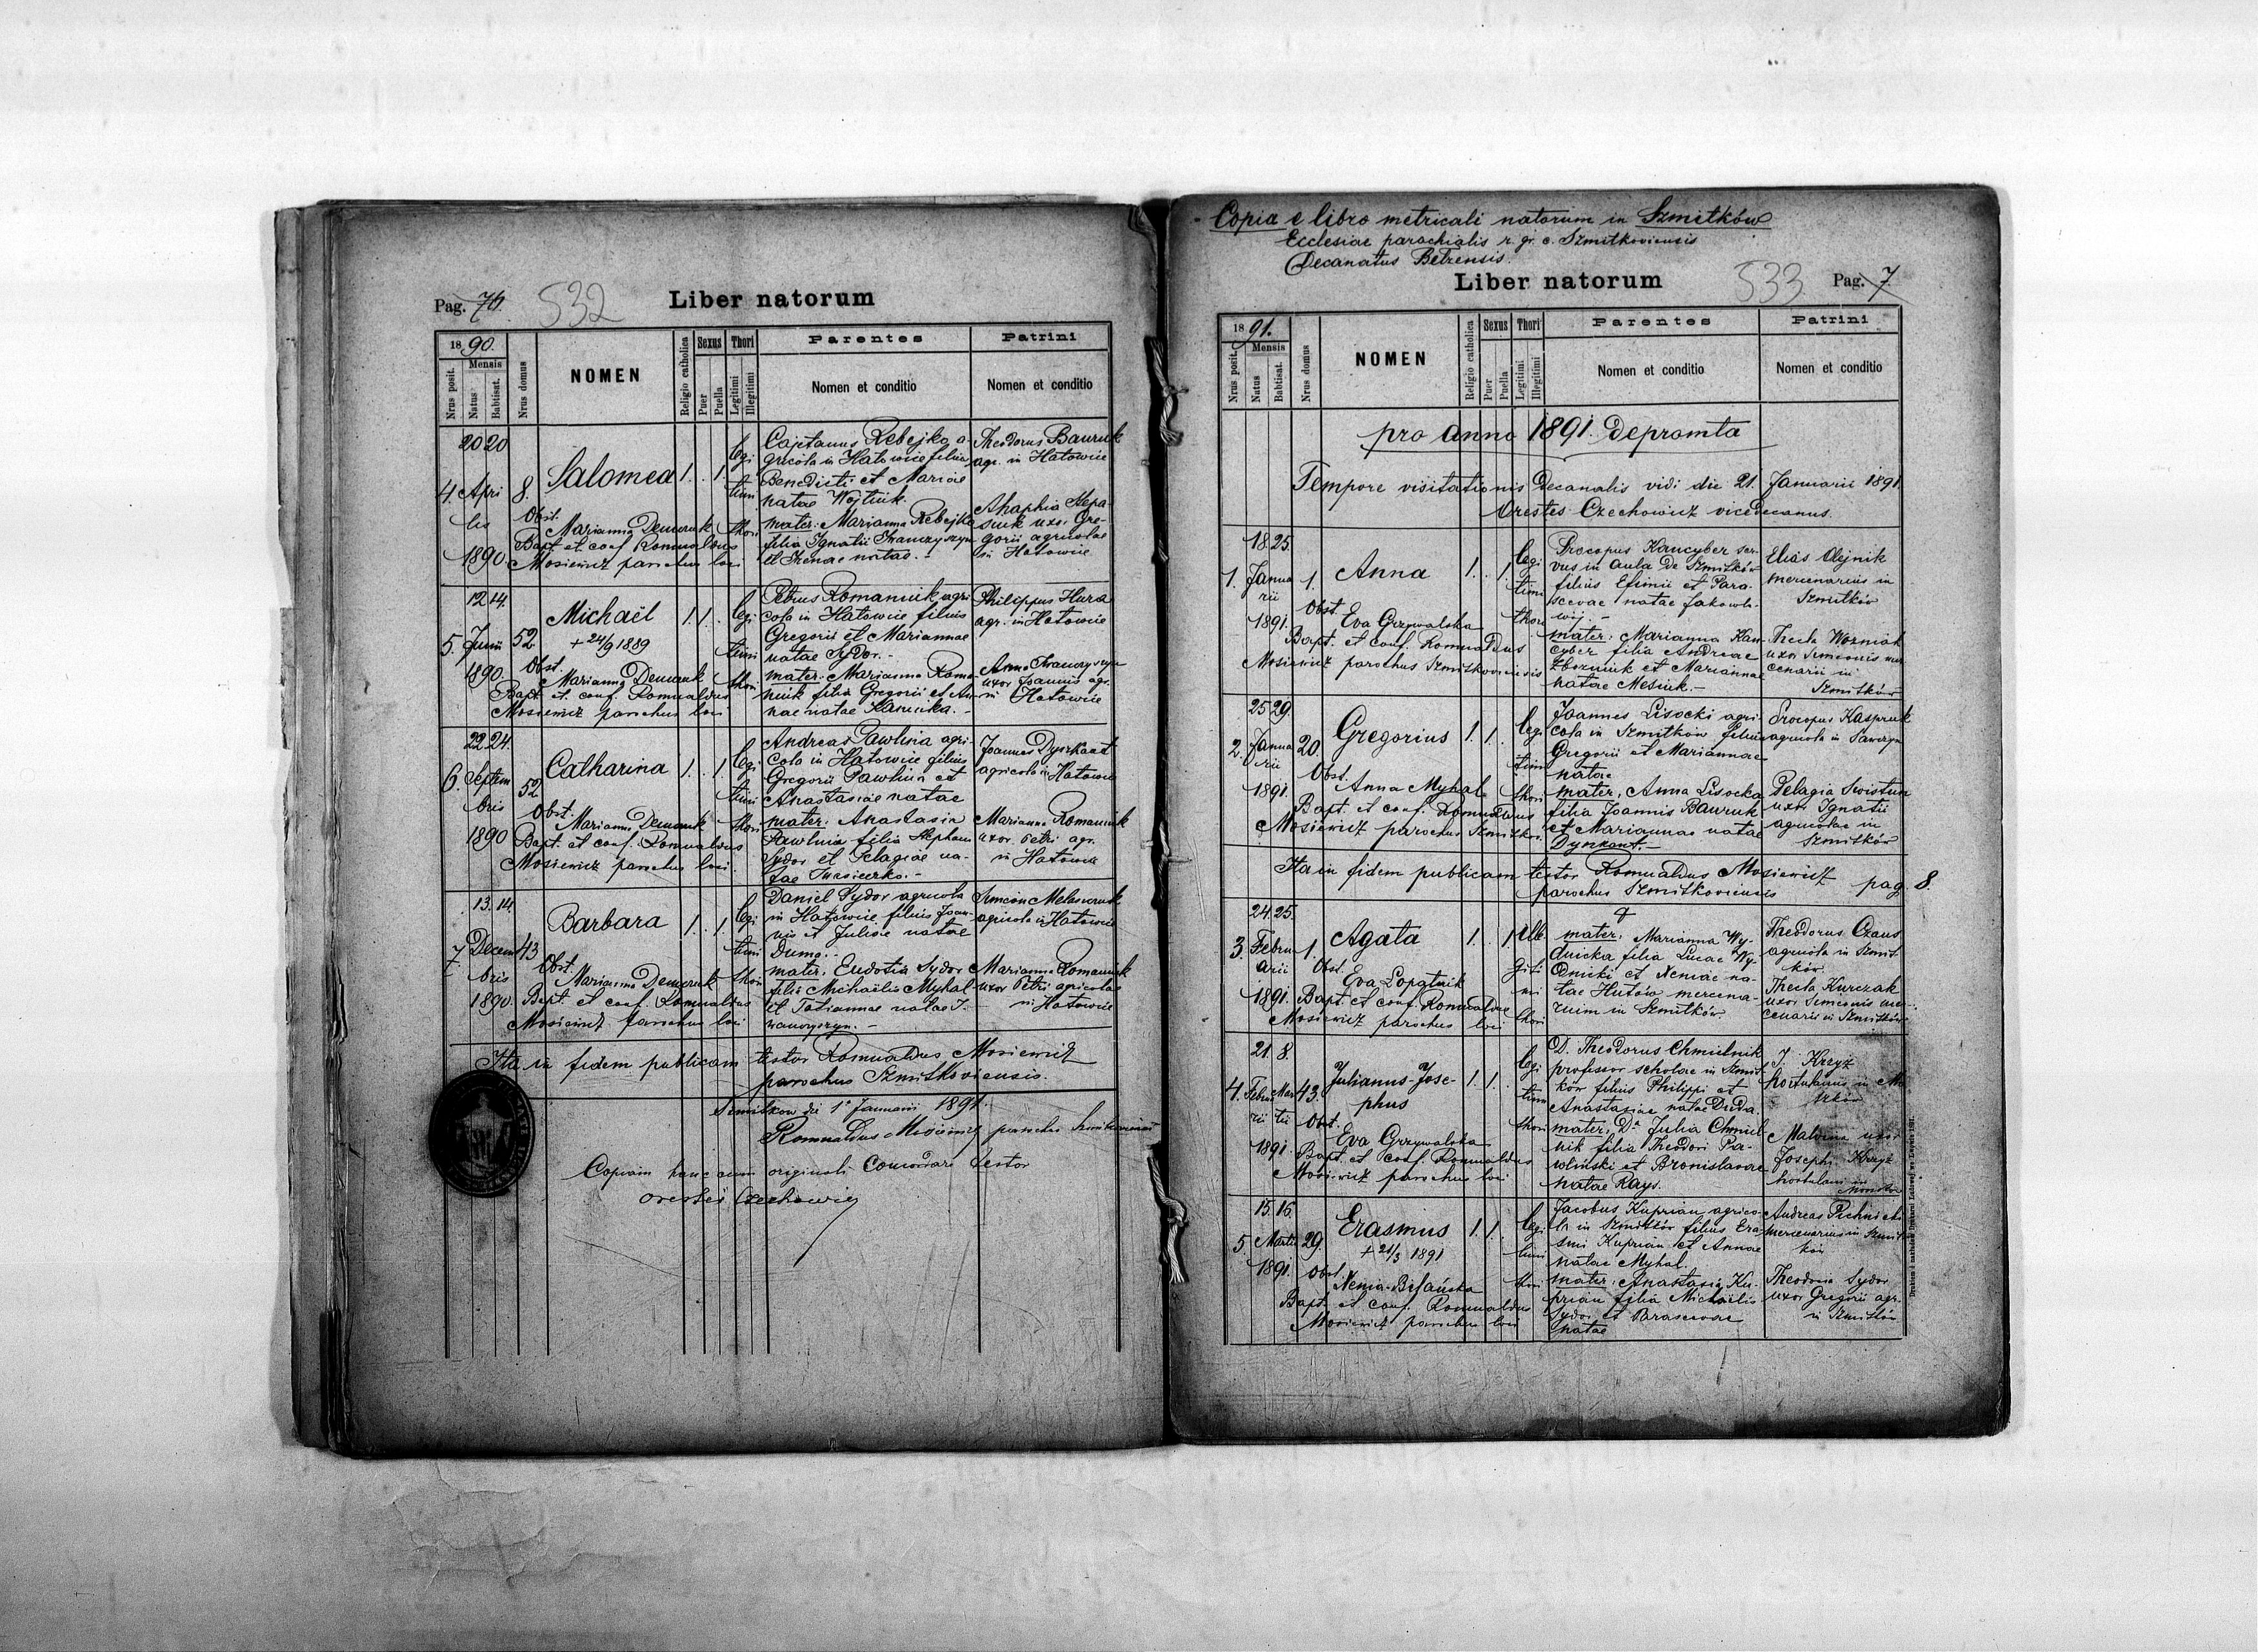 Pag. 76.
532
Liber natorum
1890.
Mensis
Nrus posit.
Natus
Babtisat.
Nrus domus
NOMEN
Religio catholica
Sexus
Puer
Puella
Thori
Legitimi
Illegitimi
Parentes
Nomen et conditio
Patrini
Nomen et conditio
4. 20 20 Aprilis 1890. 8.
Salomea 1. 1.
legi
timi
thori
Obst.
Marianna Demczuk
Bapt. et conf. Romualdus
Mosiewicz parochus loci
Cajetanus Rebejko a-
gricola in Hatowice filius
Benedicti et Mariae
natae Wojtiuk.
mater: Marianna Rebejko
filia Ignatii Iwanczyszyn
et Irenae natae. -
Theodorus Bauruk
agr. in Hatowice
Ahaphia Stepa-
siuk uxor Gre-
gorii agricolae
in Hatowice
5. 12 14. Junii 1890. 52.
Michaël 1. 1.
+ 24/9 1889
legi
timi
thori
Obst.
Marianna Demczuk
Bapt. et conf. Romualdus
Mosiewicz parochus loci
Petrus Romaniuk agri
cola in Hatowice filius
Gregorii et Mariannae
natae Sydor. -
mater: Marianna Roma-
niuk filia Gregorii et An-
nae natae
Philippus Hura
agr. in Hatowice
Anna Iwanczyszyn
uxor Joannis agr.
in Hatowice
6. 22 24. Septembris 1890 52.
Catharina 1. 1.
legi
timi
thori
Obst.
Marianna Demczuk
Bapt. et conf. Romualdus
Mosiewicz parochus loci.
Andreas Pawlina agri-
cola in Hatowice filius
Gregorii Pawlina et
Anastasiae natae
mater: Anastasia
Pawlina filia Stephani
Sydor et Pelagiae na-
tae
Joannes Dyszkant
agricola in Hatowice
Marianna Romaniuk
uxor Petri agr.
in Hatowice
7. 13. 14. Decembris 1890. 43
Barbara 1. 1.
legi
timi
thori
Obst.
Marianna Demczuk
Bapt et conf. Romualdus
Mosiewicz parochus loci
Daniel Sydor agricola
in Hatowice filius Joan-
nis et Juliae natae
Duma. -
mater: Eudotia Sydor
filia Michaëlis Myhal
et Tatiannae natae I-
wanczyszyn. -
Simeon
agricola in Hatowice
Marianna Romaniuk
uxor Petri agricolae
in Hatowice
Ita in fidem publicam testor Romualdus Mosiewicz
parochus Szmitkoviensis.
Szmitkow die 1a Januarii 1891.
Romualdus Mosiewicz parochus Szmitkoviensis
Copiam hanc cum originali concordare testor
Orestes Czechowicz
Copia e libro metricali natorum in Szmitków
Ecclesiae parochialis r. gr. c. Szmitkoviensis
Decanatus Belzensis.
Liber natorum
533
Pag. 7.
1891.
Mensis
Nrus posit.
Natus
Babtisat.
Nrus domus
NOMEN
Religio catholica
Sexus
Puer
Puella
Thori
Legitimi
Illegitimi
Parentes
Nomen et conditio
Patrini
Nomen et conditio
pro anno 1891. depromta
Tempore visitationis Decanalis vidi die 21. Januarii 1891.
Orestes Czechowicz vicedecanus.
1. 18. 25. Januarii 1891. 1.
Anna 1. 1.
legi
timi
thori
Obst.
Eva Grzywalska
Bapt. et conf. Romualdus
Mosiewicz parochus Szmitkoviensis
Procopus Kancyber ser-
vus in aula de Szmitków
filius Efimii et Para-
scevae natae Jakowle-
wij. -
mater: Marianna Kan-
cyber filia Andreae
Zbozniuk et Mariannae
natae Mesiuk. -
Elias Olejnik
mercenarius in
Szmitków
Thecla Wozniak
uxor Simeonis mer
cenarii in
Szmitków
2. 25 29. Januarii 1891. 20.
Gregorius 1. 1.
legi
timi
thori
Obst.
Anna Myhal
Bapt. et conf. Romualdus
Mosiewicz parochus Szmitkov.
Joannes Lisocki agri-
cola in Szmitków filius
Gregorii et Mariannae
natae
mater: Anna Lisocka
filia Joannis Bauruk
et Mariannae natae
Dyszkant. -
Procopus Kaspruk
agricola in Sawczyn
Pelagia Swistun
uxor Ignatii
agricolae in
Szmitków
Ita in fidem publicam testor Romualdus Mosiewicz
parochus Szmitkoviensis
pag. 8.
3. 24. 25. Februarii 1891. 1.
Agata 1. 1.
Ille
giti
mi
thori
Obst.
Eva Lopatnik
Bapt. et conf. Romualdus
Mosiewicz parochus loci
mater: Marianna Wy-
dnicka filia Lucae Wy-
dnicki et Xeniae na-
tae Hutów mercena-
rium in Szmitków.
Theodorus Czaus
agricola in Szmit
ków.
Thecla Kurczak
uxor Simeonis mer-
cenarii in Szmitków
4. 21. 8. Februarii Martii 1891. 43.
Julianus-Jose-
phus 1. 1.
legi
timi
thori
Obst.
Eva Grzywalska
Bapt. et conf. Romualdus
Mosiewicz parochus loci
D. Theodorus Chmielnik
professor scholae in Szmit
ków filius Philippi et
Anastasiae natae Duda.
mater: Da Julia Chmiel
nik filia Theodori Pa-
wlinski et Bronislavae
natae Rays.
J. Krzyż
hortulanus in
Malvina uxor
Josephi Krzyż
hortulani in
5. 15. 16. Martii 1891. 29.
Erasmus 1. 1.
+ 21/3 1891
legi
timi
thori
Obst.
Bapt. et conf. Romualdus
Mosiewicz parochus loci
Jacobus Kuprian agrico-
la in Szmitków filius Era-
smi Kuprian et Annae
natae Myhal.
mater: Anastasia Ku-
prian filia Michaëlis
Sydor et Parascevae
natae
Andreas Pichnicki
mercenarius in Szmit
ków
Theodosia Sydor
uxor Gregorii agr.
in Szmitków